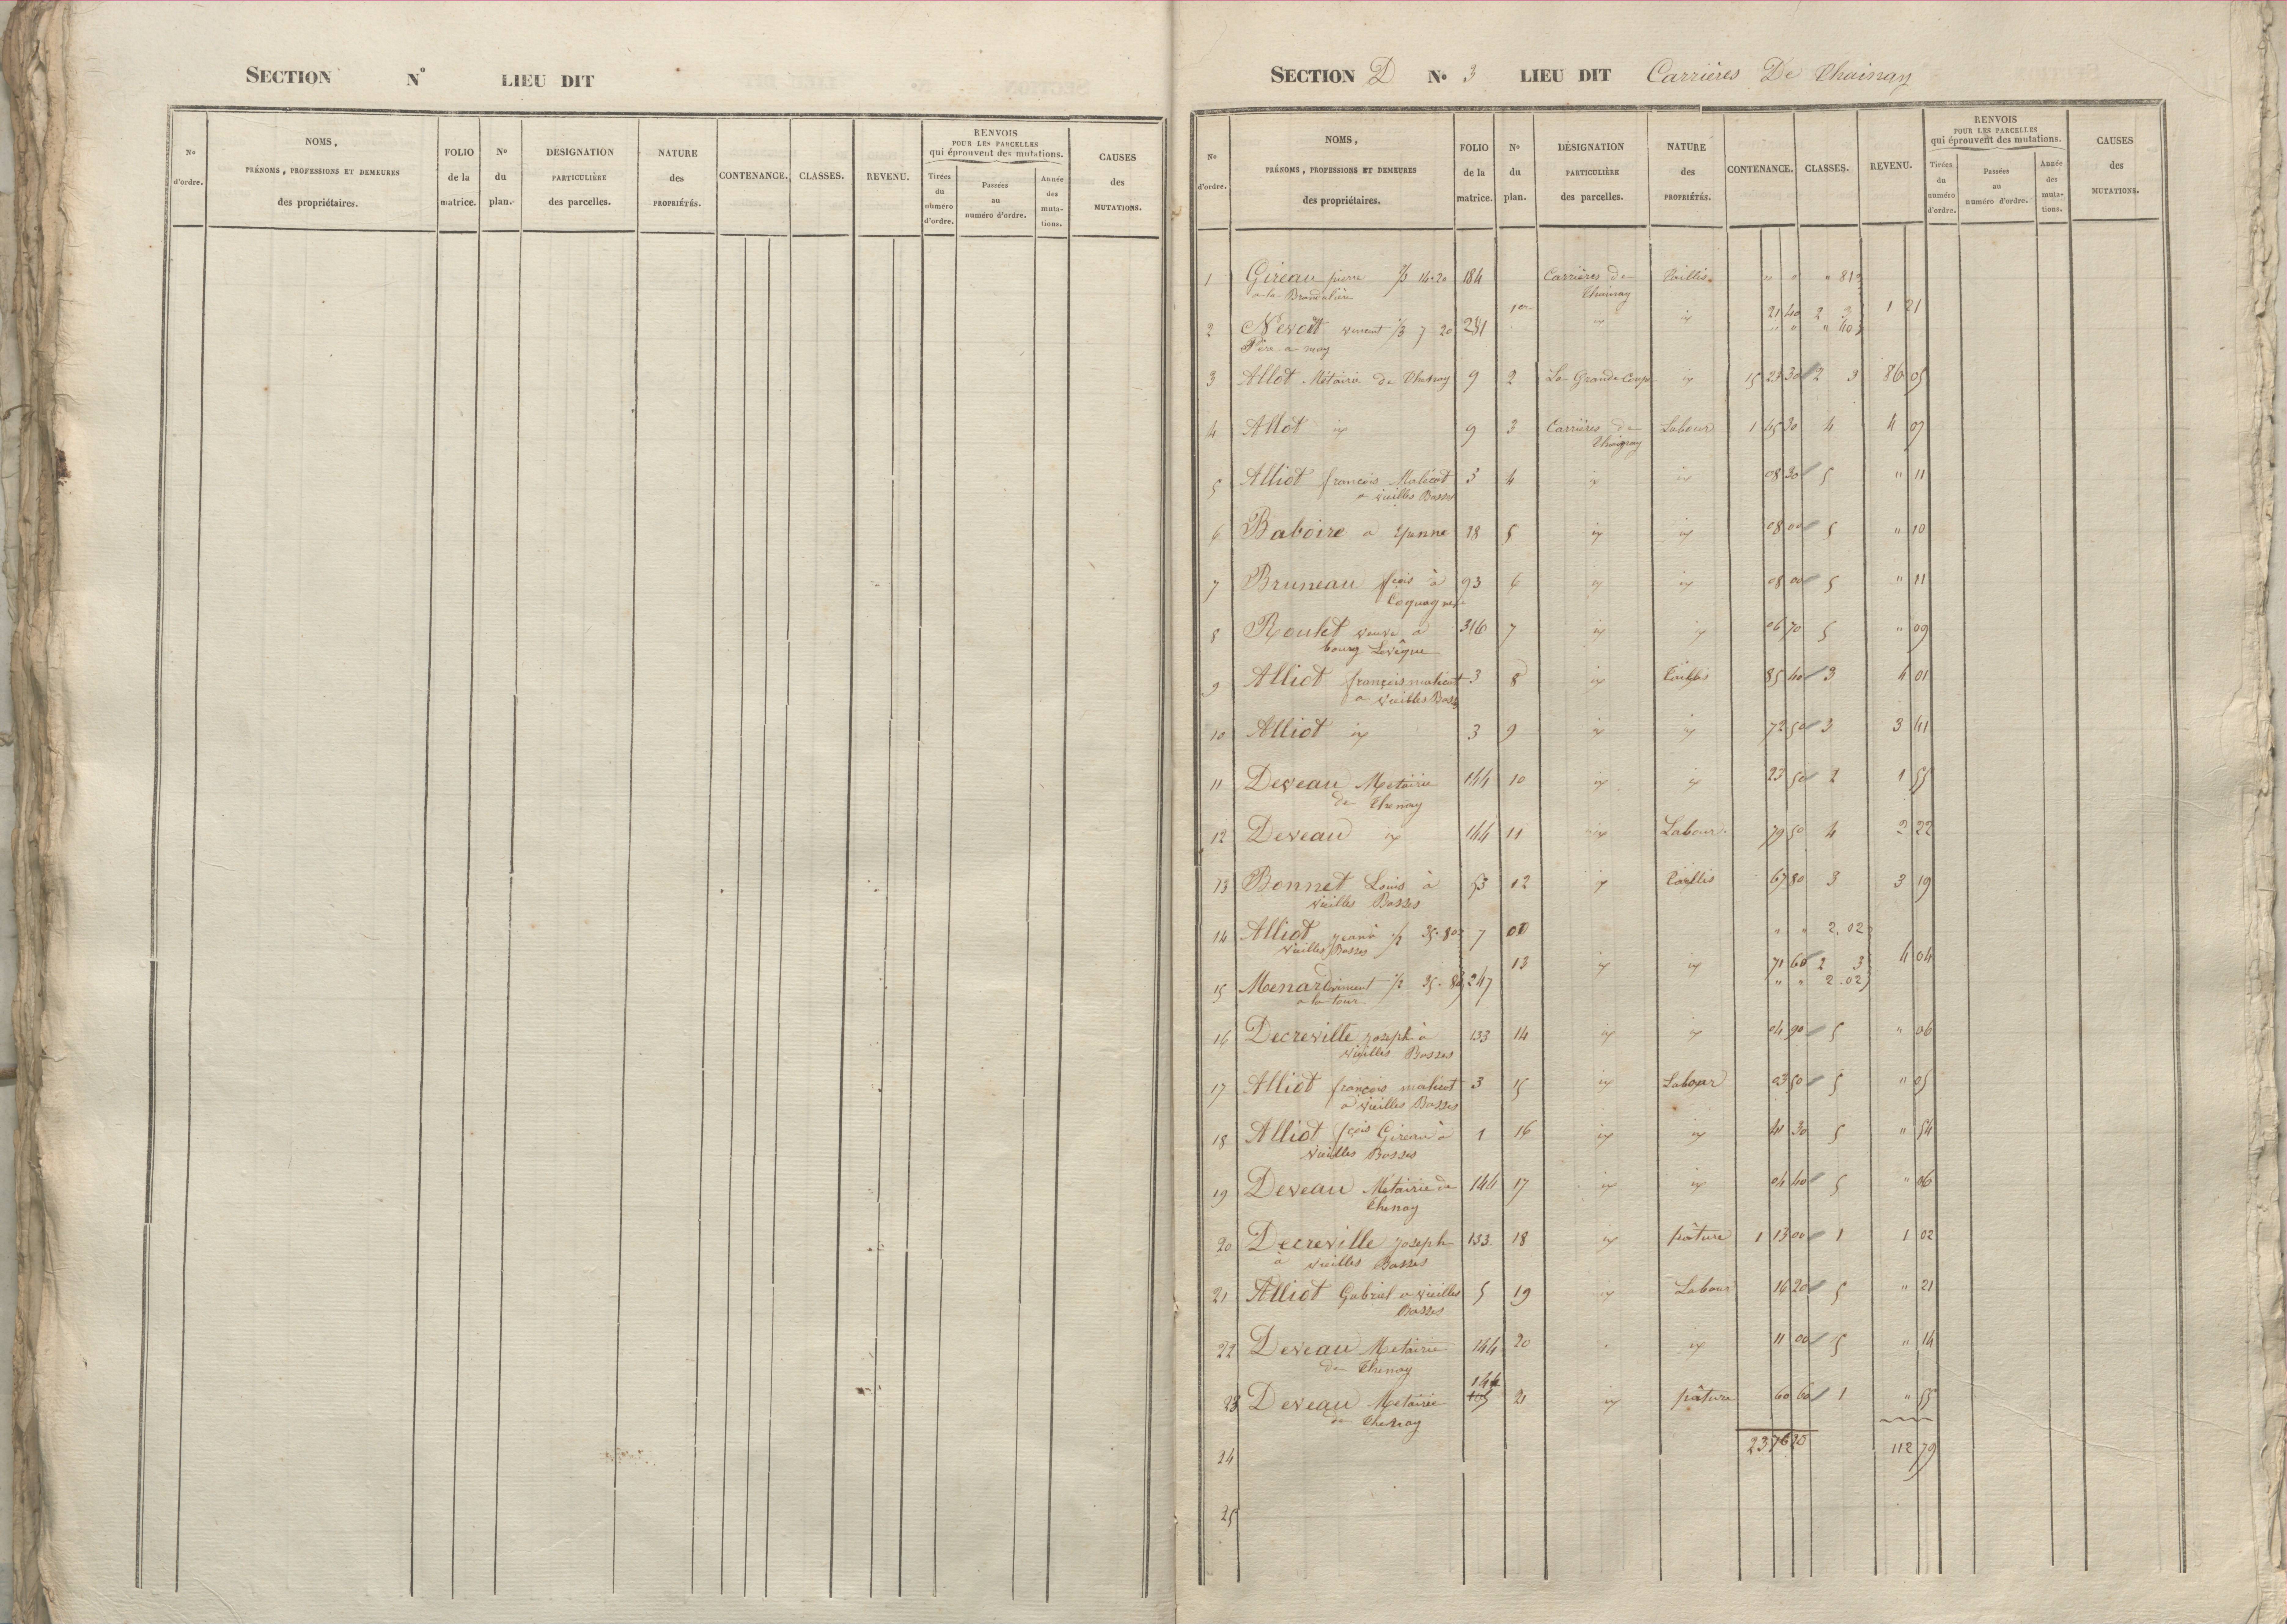 SECTION N° LIEU DIT
N° d'ordre.
NOMS,
PRÉNOMS, PROFESSIONS ET DEMEURES
des propriétaires.
FOLIO de la matrice.
N° du plan.
DÉSIGNATION PARTICULIÈRE des parcelles.
NATURE des PROPRIÉTÉS.
CONTENANCE.
CLASSES.
REVENU.
RENVOIS
POUR LES PARCELLES
qui éprouvent des mutations.
Tirées du numéro d'ordre.
Passées au numéro d'ordre.
Année des mutations.
CAUSES des MUTATIONS.
SECTION D N° 3 LIEU DIT Carrières De Thainay
N° d'ordre.
NOMS,
PRÉNOMS, PROFESSIONS ET DEMEURES
des propriétaires.
FOLIO de la matrice.
N° du plan.
DÉSIGNATION PARTICULIÈRE des parcelles.
NATURE des PROPRIÉTÉS.
CONTENANCE.
CLASSES.
REVENU.
RENVOIS
POUR LES PARCELLES
qui éprouvent des mutations.
Tirées du numéro d'ordre.
Passées au numéro d'ordre.
Année des mutations.
CAUSES des MUTATIONS.
1 Gireau pierre 2/3 14.20 184 Carrières de Taillis " " " 81
a la Thainay
1er 21 40 2 3 1 21
2 vincent 1/3 7 20 281 id id " " " 40
Père a may
3 Allot Métairie de 9 2 La Grande Coupe id 15 23 30 2 3 86 05
4 Allot id 9 3 Carrières de Labour 1 45 30 4 4 07
Thainay
5 Alliot françois Malicot 3 4 id id 08 30 5 " 11
a vieilles Bosses
6 Baboire a 18 5 id id 08 00 5 " 10
7 Bruneau fçois à 93 6 id id 08 00 5 " 11
8 Roulet veuve à 316 7 id id 06 70 5 " 09
bourg Levêque
9 Alliot françois malicot 3 8 id Taillis 85 40 3 4 01
a vieilles Bosses
10 Alliot id 3 9 id id 72 50 3 3 41
11 Deveau Metairie 144 10 id id 23 50 2 1 55
de Thenay
12 Deveau id 144 11 id Labour 79 50 4 2 22
13 Bonnet Louis à 53 12 id Taillis 67 80 3 3 19
vieilles Bosses
14 Alliot jean à 1/2 35.80 7 " " 2.02
vieilles Bosses
13 id id 71 60 2 3 4 04
15 Menard vincent 1/2 35.80 247 " " 2.02
a la tour
16 Decreville joseph à 133 14 id id 04 90 5 " 06
vieilles Bosses
17 Alliot françois malicot 3 15 id Labour 03 50 5 " 05
a vieilles Bosses
18 Alliot fçois Gireau à 1 16 id id 41 30 5 " 54
vieilles Bosses
19 Deveau Métairie de 144 17 id id 04 40 5 " 06
Thenay
20 Decreville joseph 133 18 id pâture 1 13 00 1 1 02
à vieilles Bosses
21 Alliot Gabriel a vieilles 5 19 id Labour 16 20 5 " 21
Bosses
22 Deveau Metairie 144 20 id 11 00 5 " 14
de Thenay
144
23 Deveau Metairie 21 id pâture 60 60 1 " 55
de Thenay
24 23 76 20 112 79
25